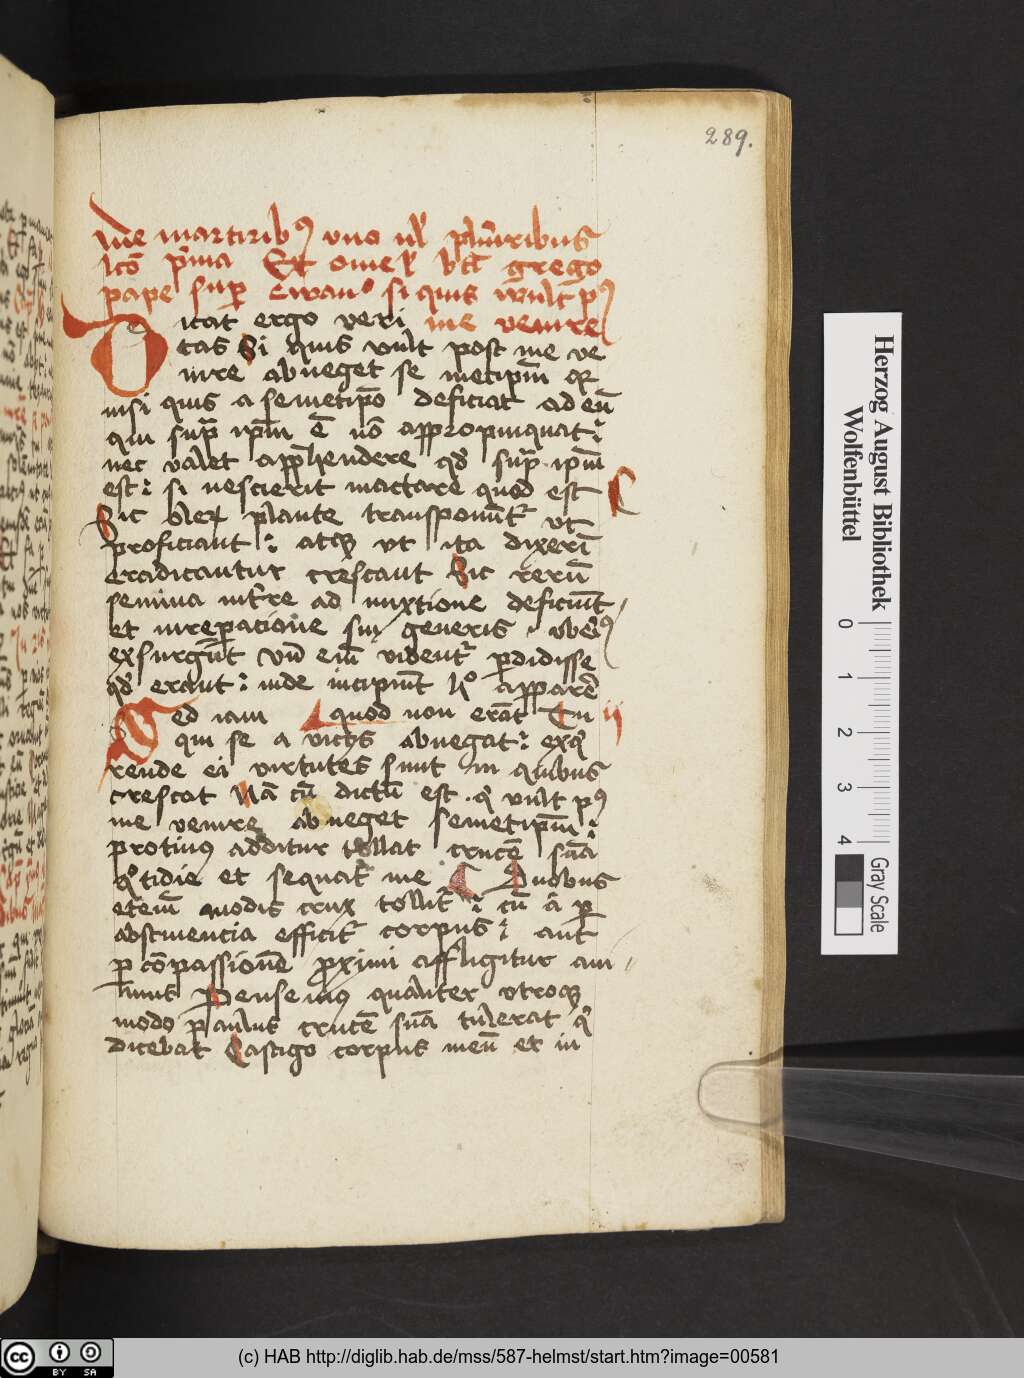 289.
De martiribꝰ uno ul' plu͛ribus
lcō p͛ma Ex omel' bt͞i grego
pape sup͛ Ewan° si quis wult pꝰ
Dicat ergo veri me venire
tas Si quis vult post me ve
nire abneget se metip̄m qꝛ
nisi quis a semetip̄o deficiat ad eū
qui sup͛ ip̄m ē nō appropinquat :
nec valet app͛hendere qd' sup͛ ip̄m
est : si nescierit mactare quod est
Sic olerꝝ plante transponūt᷑ ut
proficiant : atqꝫ ut ita dixerī
eradicantur crescant Sic rerū
semina int͛re ad mixtione deficiūt
et in repacione sui generis uberiꝰ
exsurgūt Vn̄ em̄ vident᷑ p͛didisse
qd' erant : inde incipiūt h° apparē
Sed iam quod non erāt Cui ij
qui se a viciis abnegat : exq͛
rende ei virtutes sunt in quibus
crescat Nā cū dictū est . q͛ vult pꝰ
me venire abneget semetip̄m :
protinꝰ additur tollat crucē suā
q°tidie et sequat᷑ me Duobus
etem̄ modis crux tollit᷑ : cū aut̄ p͛
abstinencia efficit᷑ corpus : aut
p͛ cōpassionē proximi affligitur ani
mus Pensemꝰ qualiter utroqꝫ
modo paulus crucē suā tulerat q͛
dicebat Castigo corpus meū et in
Herzog August Bibliothek
Wolfenbüttel
0
1
2
3
4
Gray Scale
cc
BY SA
(c) HAB http://diglib.hab.de/mss/587-helmst/start.htm?image=00581